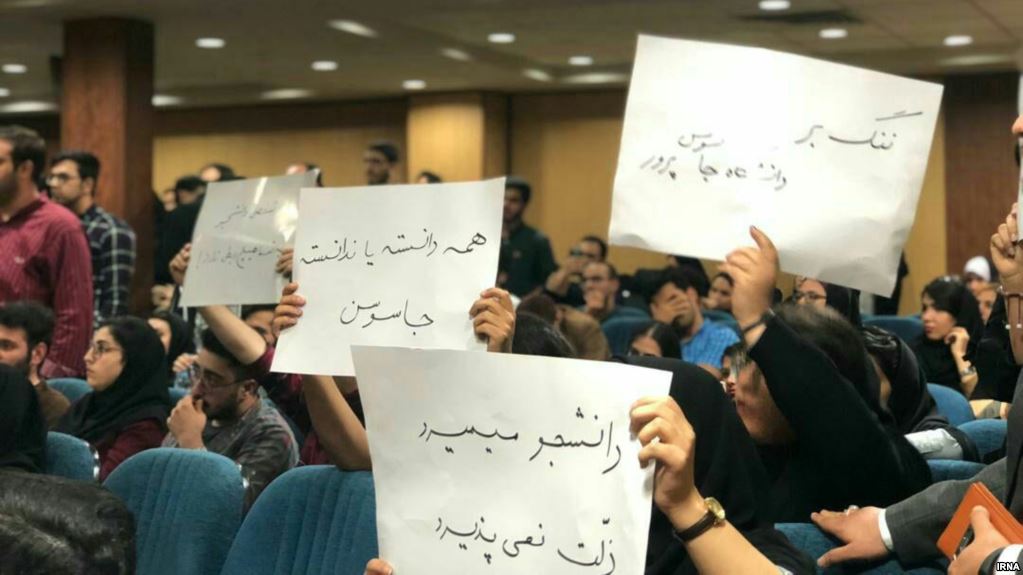 ننگ بر
دانشگاه جاسوس پرور
همه دانسته یا ندانسته
جاسوس
دانشجو میمیرد
ذلّت نمی پذیرد
IRNA